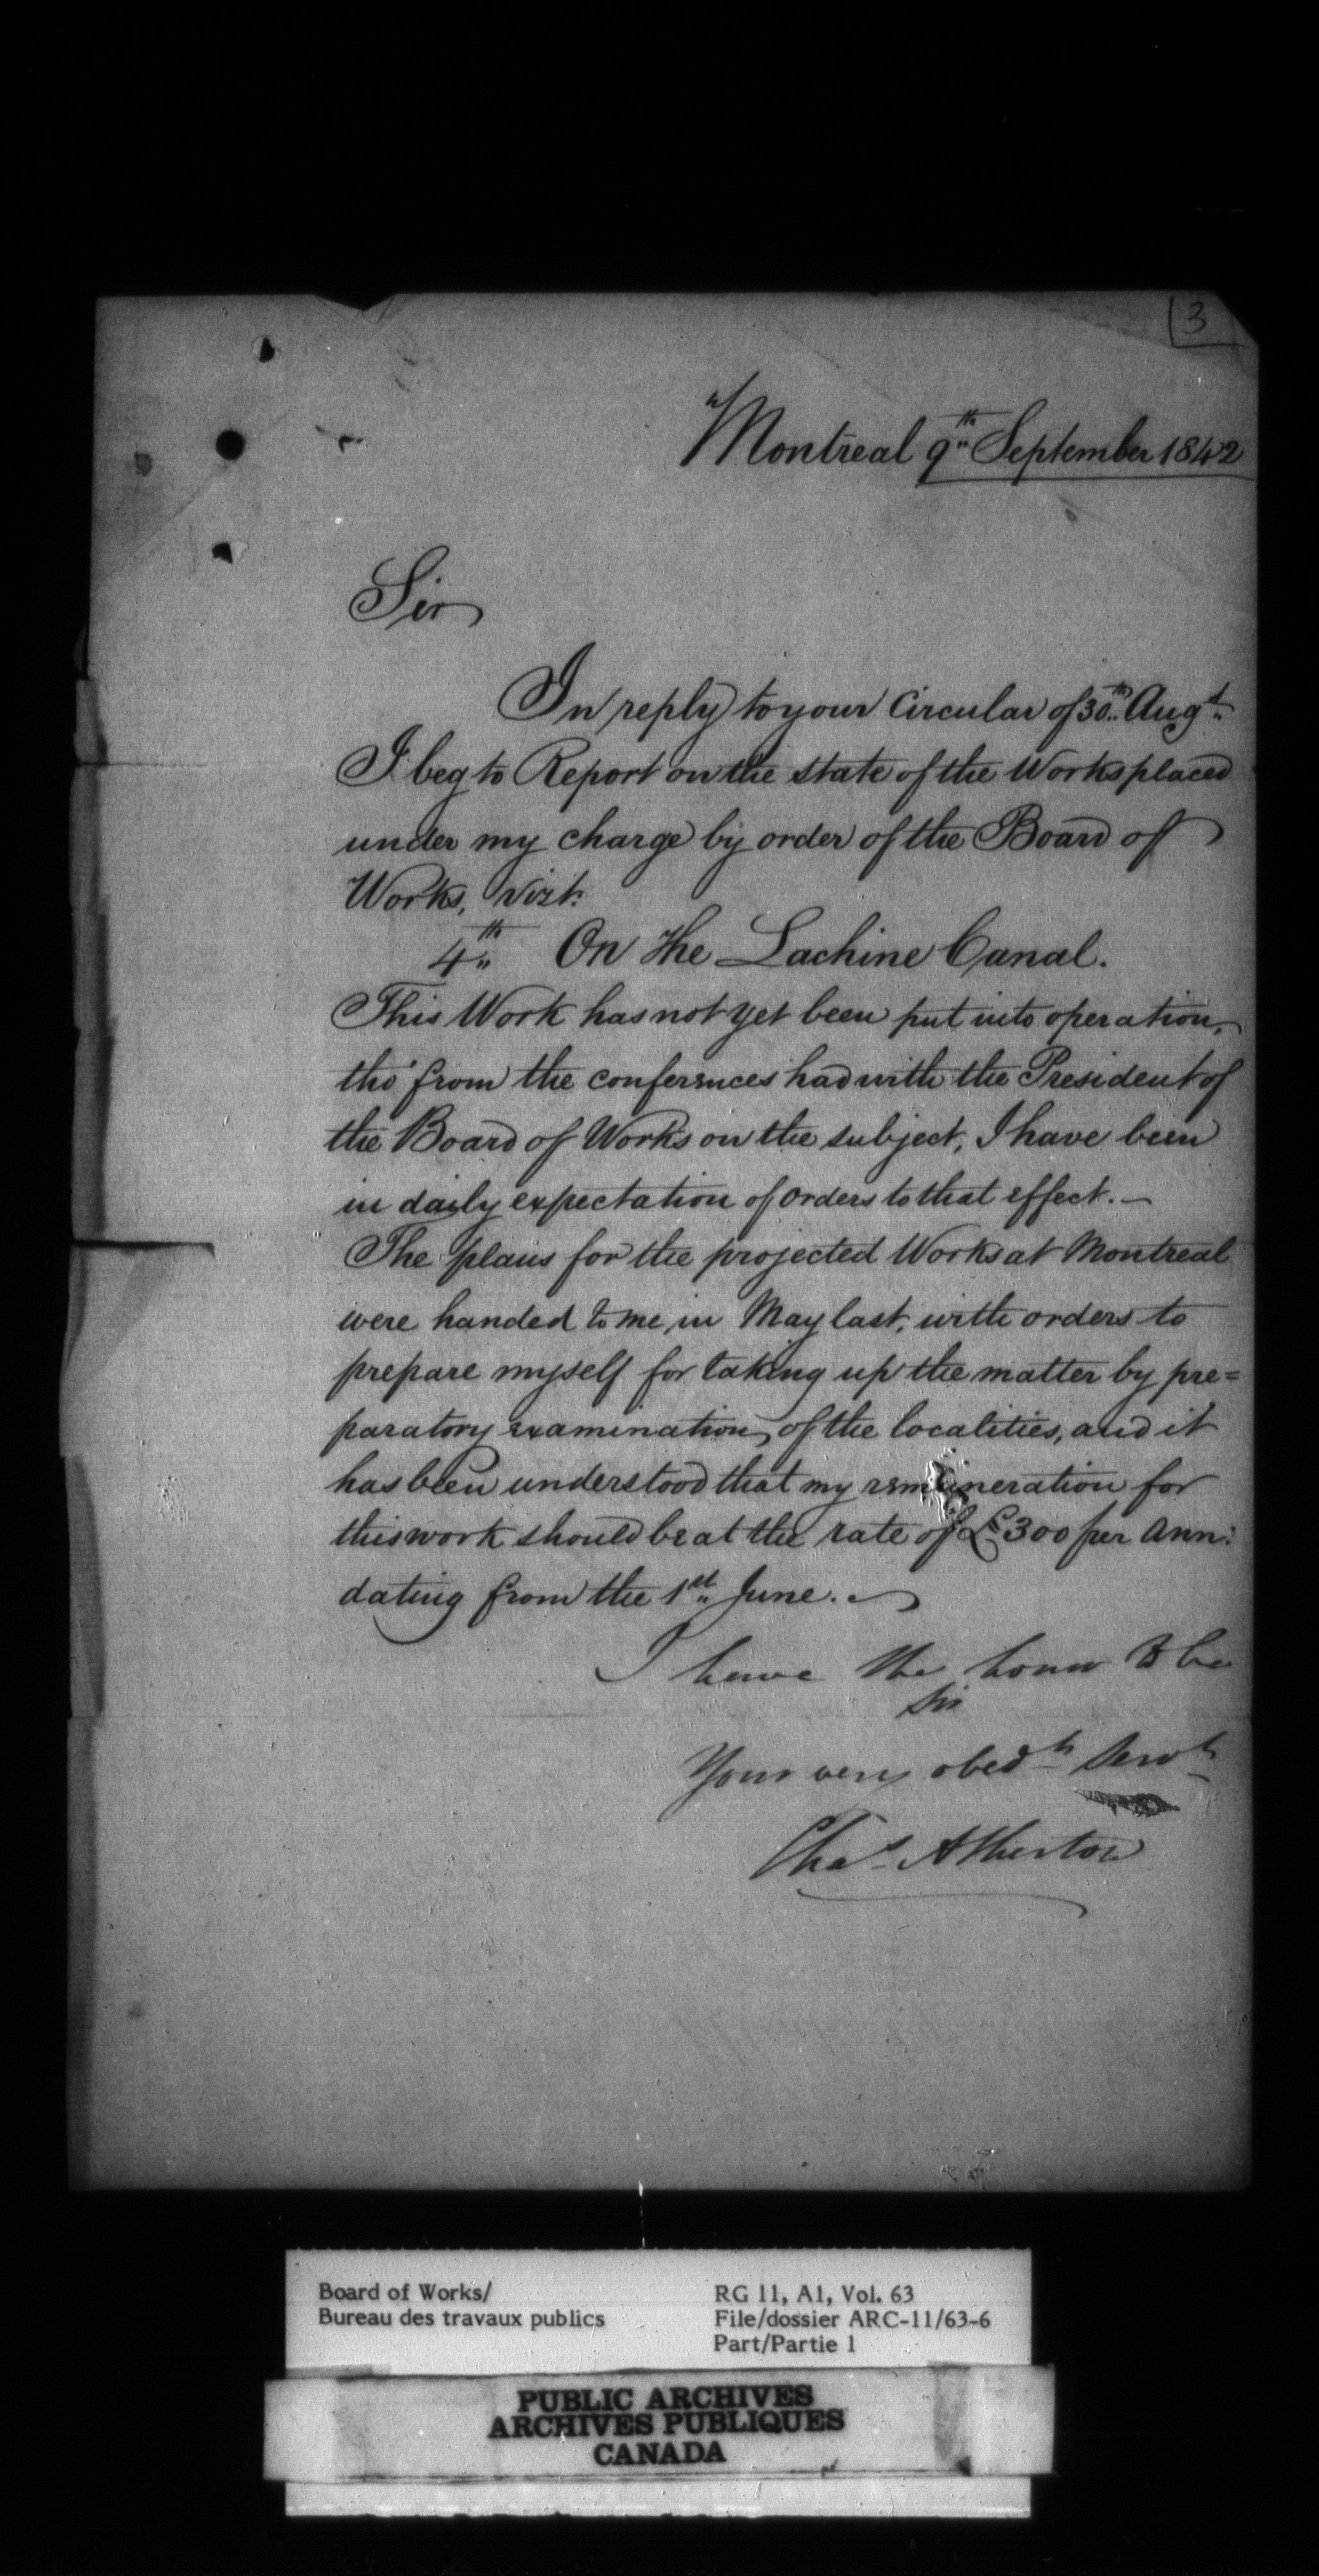 3
Montreal 9th September 1842
Sir
In reply to your Circular of 30th Augt.
I beg to Report on the state of the Works placed
under my charge by order of the Board of
Works, vizt:
4th On the Lachine Canal.
This Work has not yet been put into operation,
tho' from the conferences had with the President of
the Board of Works on the subject, I have been
in daily expectation of orders to that effect. —
The plans for the projected Works at Montreal
were handed to me in May last, with orders to
prepare myself for taking up the matter by pre=
paratory examination, of the localities, and it
has been understood that my remuneration for
this work should be at the rate of £300 per Ann:
dating from the 1st June.
I have the honor to be
Sir
Your very obedt Servt
Chas Atherton
Board of Works/
Bureau des travaux publics
RG 11, A1, Vol. 63
File/dossier ARC-11/63-6
Part/Partie 1
PUBLIC ARCHIVES
ARCHIVES PUBLIQUES
CANADA